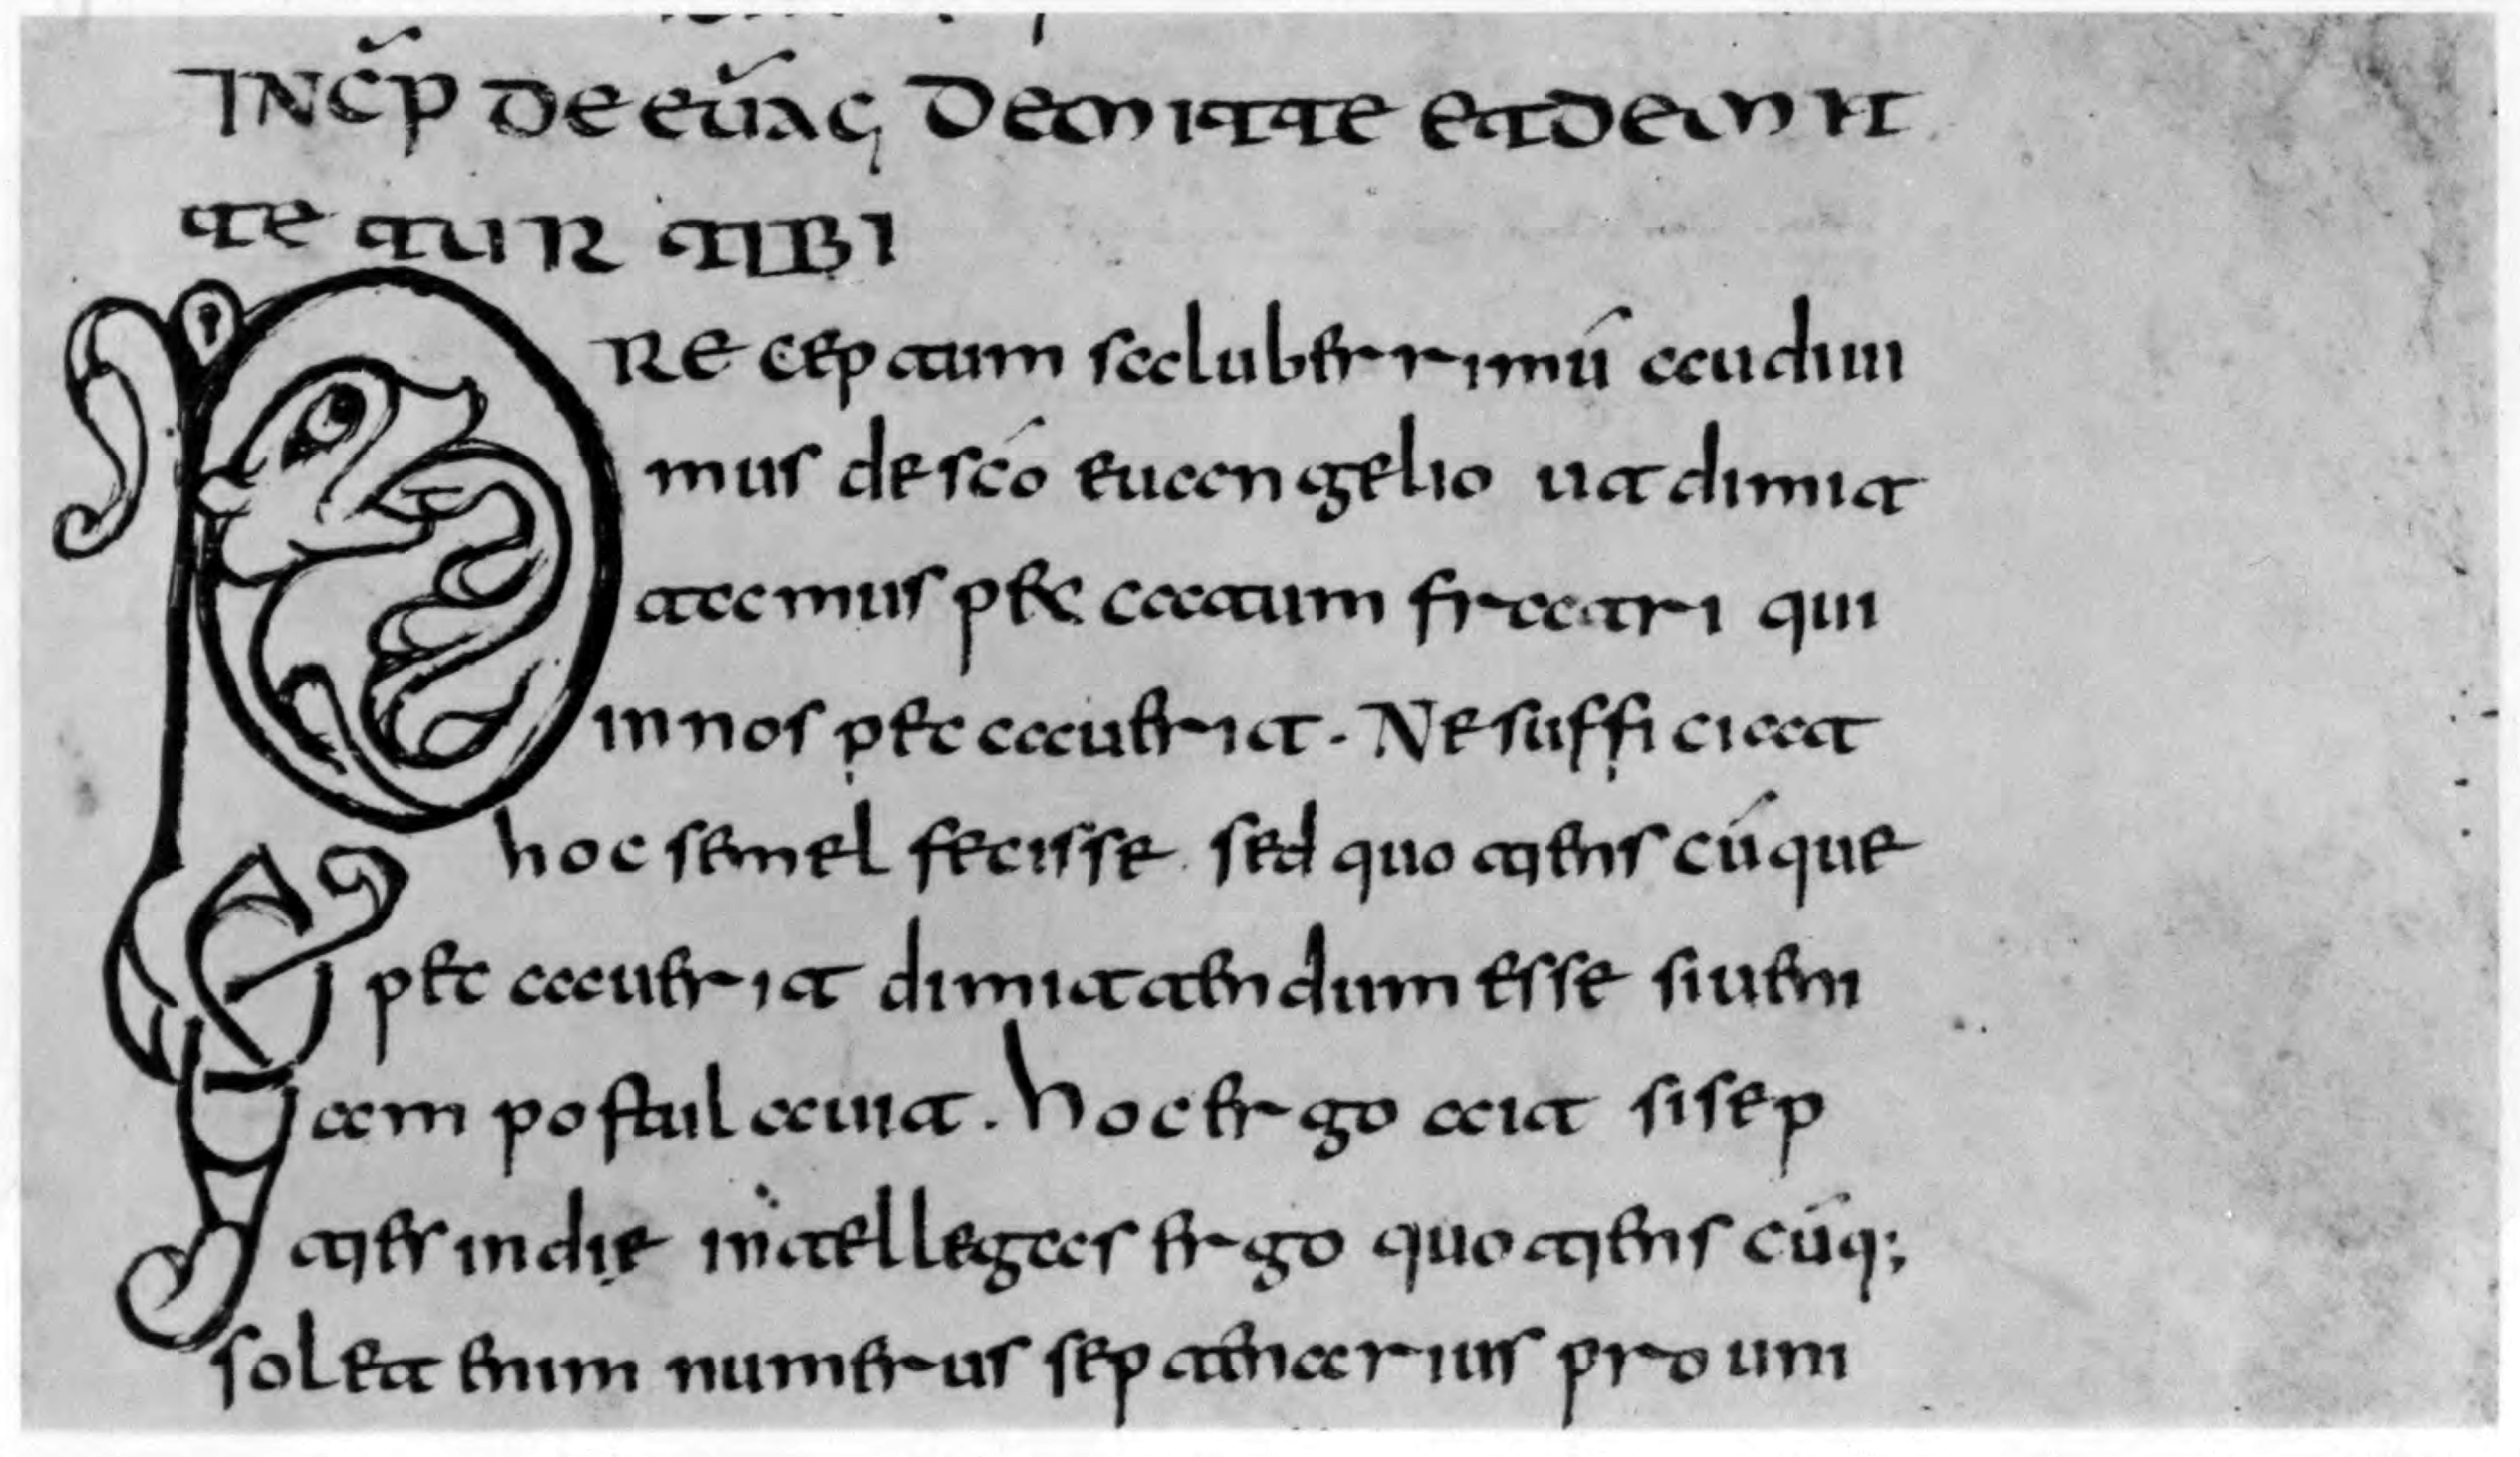 INCP̃ DE EUÃG DEMITTE ET DEMIT
TE TUR TIBI
PRECEPTUM saluberrimū audiui
mus de scō euangelio ut dimit
tamus peccatum fratri qui
in nos peccauerit. Ne sufficiat
hoc semel fecisse sed quotiens cūque
peccauerit dimittendum esse si ueni
am postulauit. hoc ergo ait si sep
ties in die intellegas ergo quotiens cūq;
solet enim numerus septenarius pro uni